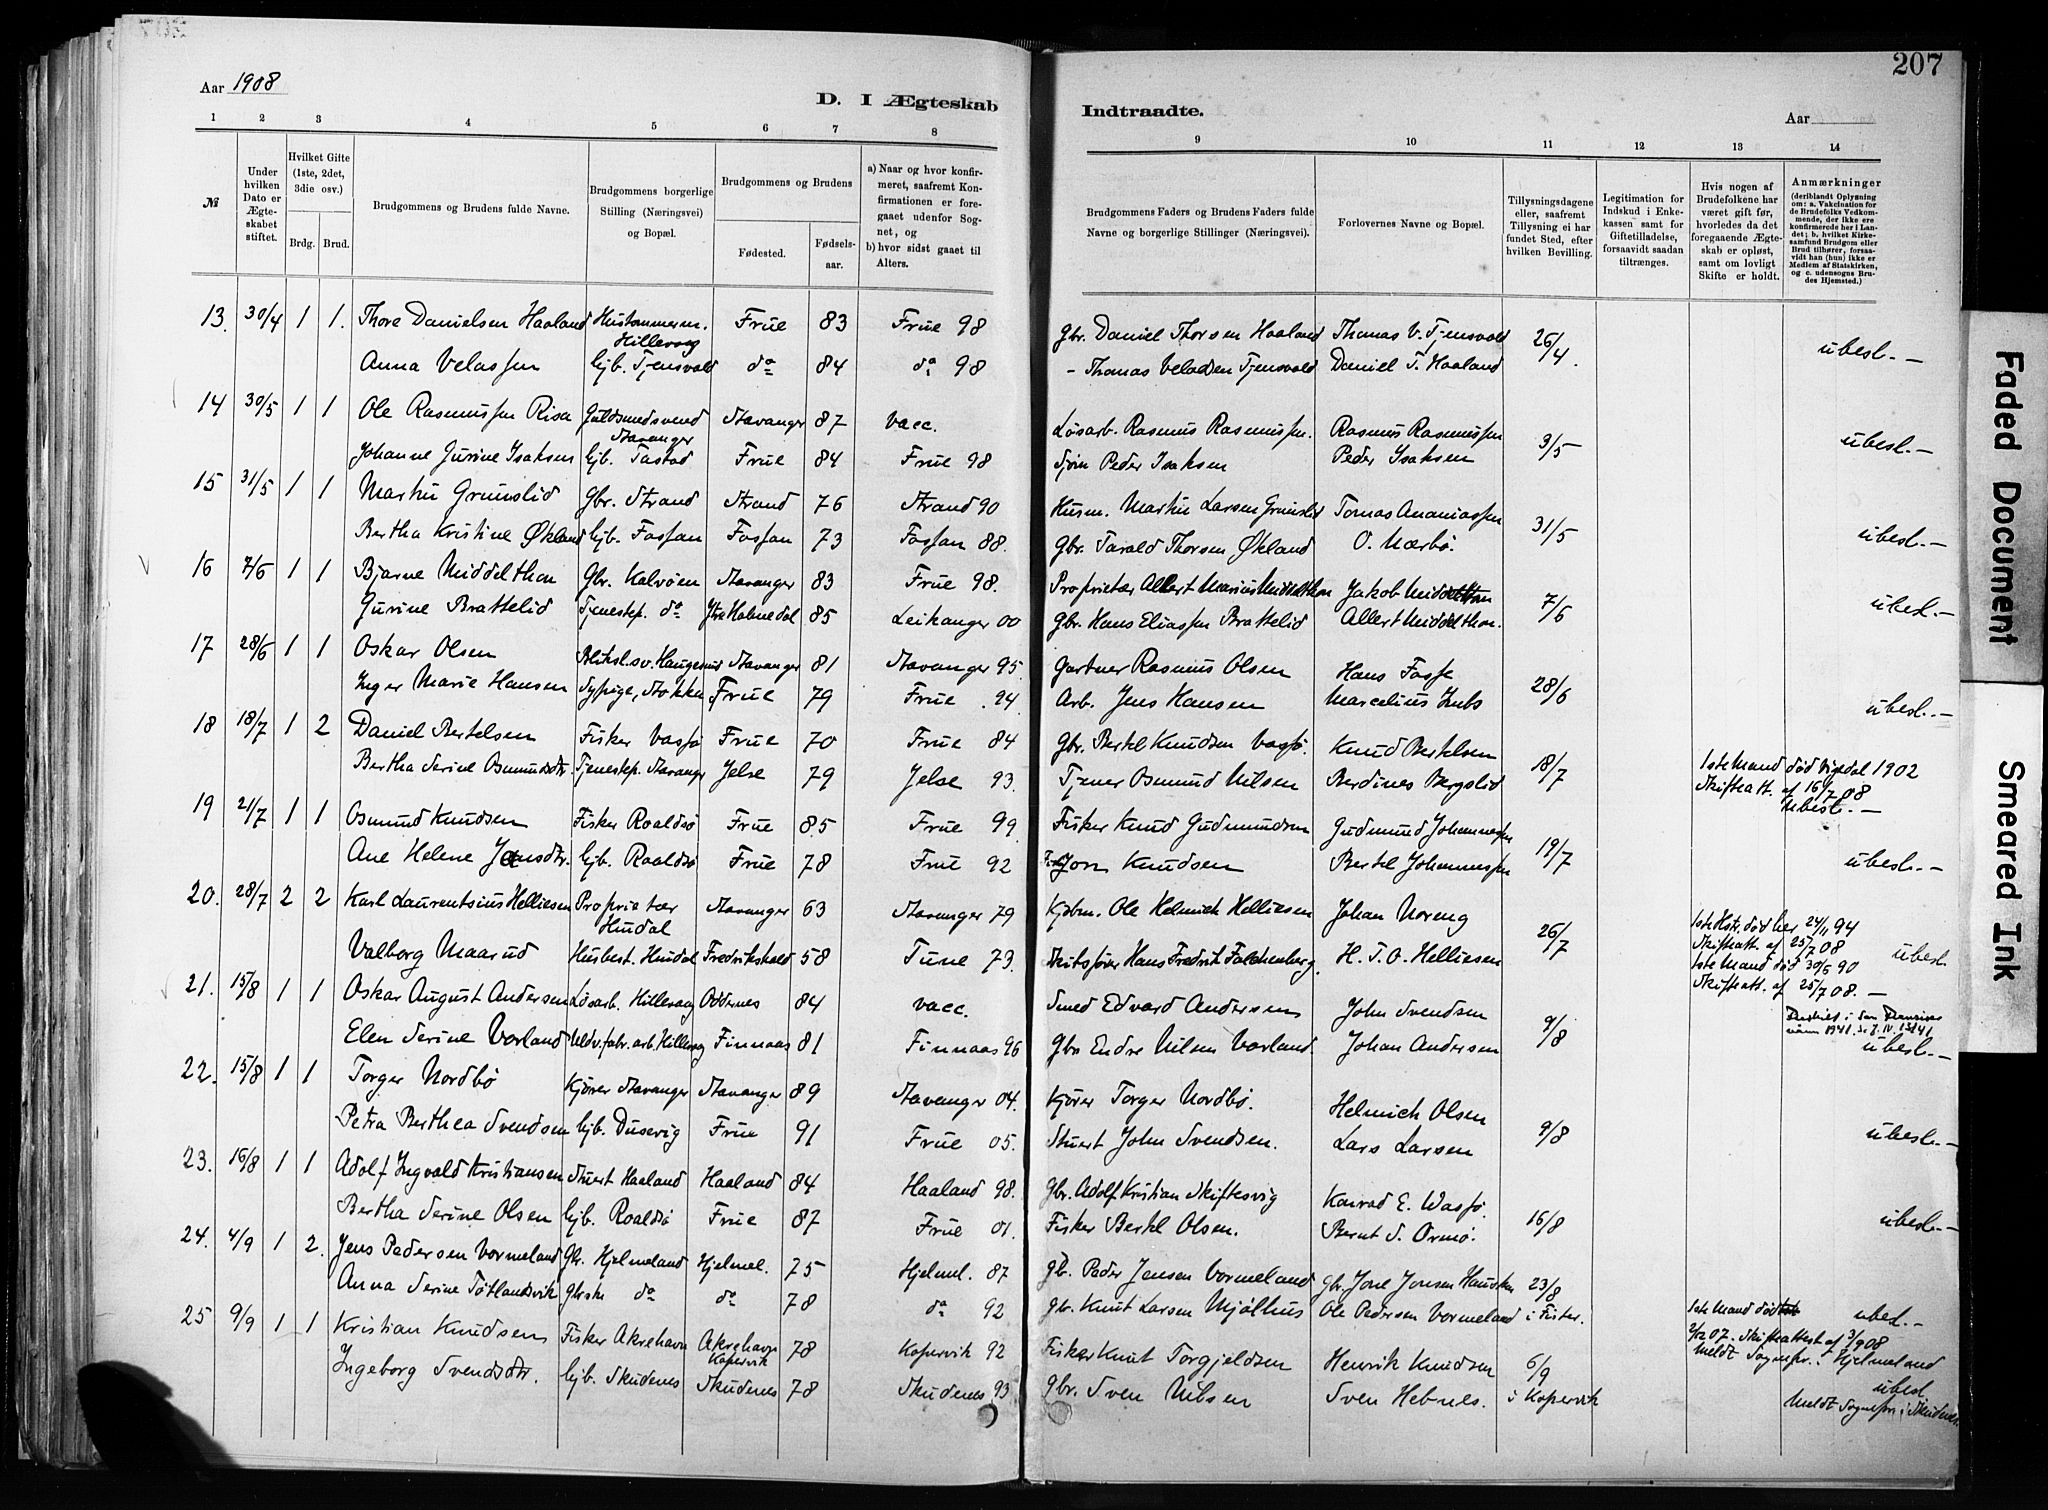 207
Aar 1908
D. I Ægteskab
Indtraadte.
Aar
1 2 3 4 5 6 7 8 9 10 11 12 13 14
№
Under hvilken Dato er Ægteskabet stiftet.
Hvilket Gifte (1ste, 2det, 3die osv.)
Brdg. Brud.
Brudgommens og Brudens fulde Navne.
Brudgommens borgerlige Stilling (Næringsvei) og Bopæl.
Brudgommens og Brudens
Fødested. Fødselsaar.
a) Naar og hvor konfirmeret, saafremt Konfirmationen er foregaaet udenfor Sognet, og
b) hvor sidst gaaet til Alters.
Brudgommens Faders og Brudens Faders fulde Navne og borgerlige Stillinger (Næringsvei).
Forlovernes Navne og Bopæl.
Tillysningsdagene eller, saafremt Tillysning ei har fundet Sted, efter hvilken Bevilling.
Legitimation for Indskud i Enkekassen samt for Giftetilladelse, forsaavidt saadan tiltrænges.
Hvis nogen af Brudefolkene har været gift før, hvorledes da det foregaaende Ægteskab er opløst, samt om lovligt Skifte er holdt.
Anmærkninger (deriblandt Oplysning om: a. Vakcination for de Brudefolks Vedkommende, der ikke ere konfirmerede her i Landet; b. hvilket Kirkesamfund Brudgom eller Brud tilhører, forsaavidt han (hun) ikke er Medlem af Statskirken, og c. udensogns Brudes Hjemsted.)
13. 30/4 1 1. Thore Danielsen Haaland Hustømmerm. Hillevaag Frue 83 Frue 98 Gbr. Daniel Thorsen Haaland Thomas V. Tjensvold 26/4.
Anna Velassen hjb. Tjensvold do 84 do 98 - Thomas Veladsen Tjensvold Daniel T. Haaland ubesl. -
14 30/5 1 1 Ole Rasmussen Risa Guldsmedsvend Stavanger Stavanger 87 vacc. Løsarb. Rasmus Rasmussen. Rasmus Rasmussen 3/5
Johanne Gurine Isaksen hjb. Tastad Frue 84 Frue 98 Peder Isaksen Peder Isaksen ubesl. -
15 31/5 1 1 Martin Grimslid Gbr. Strand Strand 76 Strand 90 Husm. Martin Larsen Grimslid Tomas Ananiassen 31/5
Bertha Kristine Økland hjb. Fossan Fossan 73 Fossan 88. Gbr. Tarald Thorsen Økland O. Nærbø. ubesl. -
16 7/6 1 1 Bjarne Middelthon Gbr. Kalvøen Stavanger 83 Frue 98. Proprietær Albert Marius Middelthon Jakob Middelthon 7/6
Gurine Brattelid Tjenestep. do 85 Leikanger 00 Gbr. Hans Eliassen Brattelid Allert Middelthon. ubesl. -
17 28/6 1 1 Oskar Olsen Bliksl.sv. Haugesund Stavanger 81 Stavanger 95. Gartner Rasmus Olsen Hans Fosse 28/6
Inger Marie Hansen Sypige, Frue 79 Frue 94 Arb. Jens Hansen Marcelius ubesl. -
18 18/7 1 2 Daniel Bertelsen Fisker Vassø Frue 70 Frue 84 Gbr. Bertel Knudsen Vassø. Knud Bertelsen 18/7
Bertha Serine Osmundsdtr. Tjenestep. Stavanger Jelse 79 Jelse 93. Tjener Osmund Nilsen Berdines Bergslid 1ste Mand død 1902
Skifteatt. af 16/7 08 ubesl. -
19 21/7 1 1 Osmund Knudsen Fisker Roaldsø Frue 85 Frue 99 Fisker Knud Gudmundsen Gudmund Johannessen 19/7
Ane Helene hjb. Roaldsø Frue 78 Frue 92 Jon Knudsen Bertel Johannessen ubesl. -
20. 28/7 2 2 Karl Laurentsius Helliesen Proprietær Hindal Stavanger 63 Stavanger 79 Kjøbm. Ole Helmich Helliesen Johan Noreng 26/7 1ste Hstr. død her 24/11 94
Skifteatt. af 25/7 08
Valborg Maarud Husbest. Hindal Fredrikshald 58 Tune 73. Hans Fredrik Falchenberg. H. T. O. Helliesen 1ste Mand død 30/5 90 ubesl.
Skifteatt. af 25/7 08. -
21. 15/8 1 1 Oskar August Andersen Løsarb. Hillevaag Oddernes 84 vacc. Smed Edvard Andersen John Svendsen 9/8
Elen Serine Vorland Uldv. fabr. arb. Hillevaag Finnaas 81 Finnaas 96 Gbr Endre Nilsen Vorland. Johan Andersen ubesl. -
22. 15/8 1 1 Torger Nordbø Kjører Stavanger Stavanger 89 Stavanger 04. Kjører Torger Nordbø. Helmich Olsen 9/8
Petra Berthea Svendsen hjb. Dusevig Frue 91 Frue 05. Stuert John Svendsen. Lars Larsen ubesl. -
23. 16/8 1 1 Adolf Ingvald Kristiansen Stuert Haaland Haaland 84 Haaland 98. Gbr. Adolf Kristian Skiftesvig Konrad E. Wassø. 16/8
Bertha Serine Olsen hjb. Roaldsø Frue 87 Frue 01. Fisker Bertel Olsen. Bernt S. Ormø. ubesl. -
24. 4/9 1 2. Jens Pedersen Vormeland Gbr. Hjelmeland Hjelmel. 75 Hjelmel. 87 Gb. Peder Jensen Vormeland Gbr. Jone Jonsen 23/8
Anna Serine Tøtlandsvik do do 78 do 92 Gbr. Knut Larsen Mjølhus Ole Pedersen Vormeland i Fister. 1ste Mand død ubesl. -
2/12 07. Skifteattest af 3/9 08
Meldt Sognepr. i Hjelmeland
25 9/9 1 1 Kristian Knudsen Fisker Akrehavn Akrehavn Kopervik 78 Kopervik 92 Fisker Knut Torgjeldsen Henrik Knudsen 6/9
Ingeborg Svendsdtr. hjb. Skudenes Skudenes 78 Skudenes 93 Gbr. Sven Nilsen Sven Hebnes. i Kopervik ubesl
Meldt Sognepr. i Skudenes
Faded Document
Smeared Ink